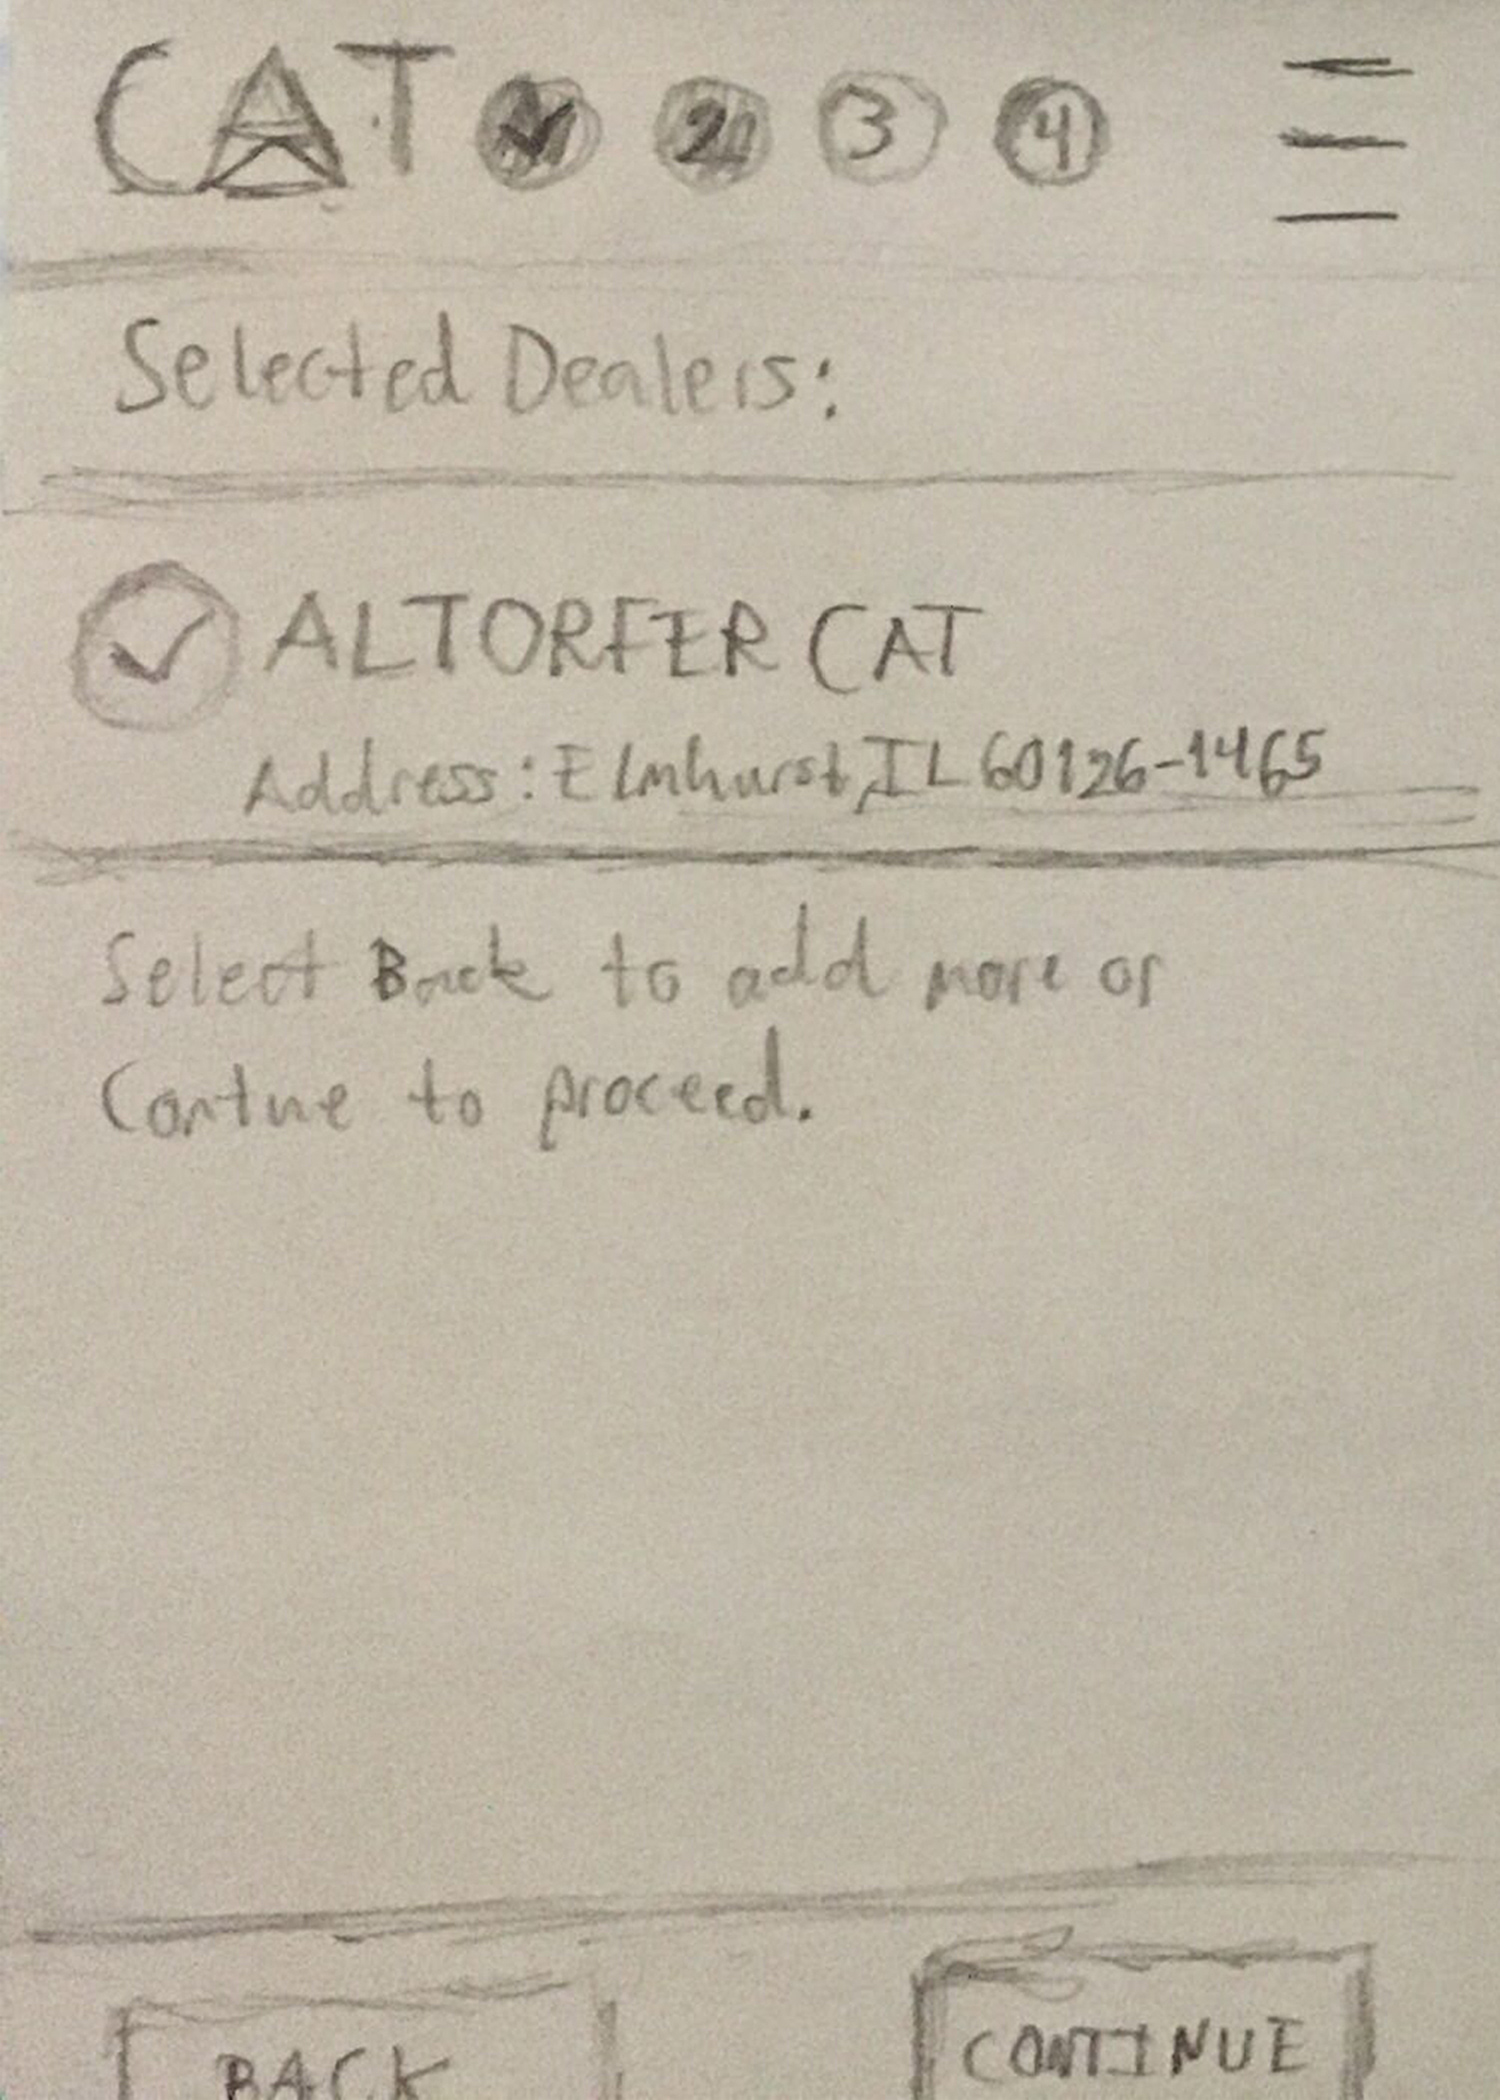 CAT ✓ 2 3 4
Selected Dealers:
ALTORFER CAT
Address: Elmhurst, IL 60126-1465
Select Back to add more or
Contnue to proceed.
BACK
CONTINUE